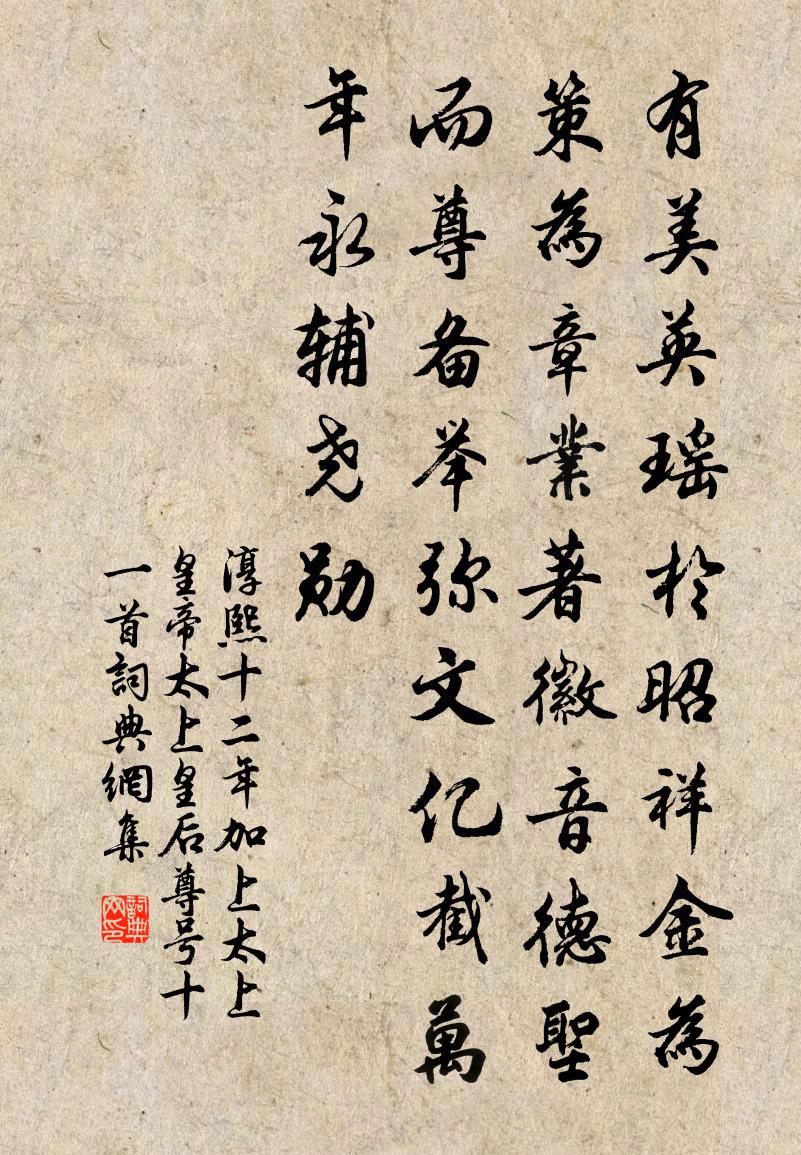 有美英瑶於昭祥金為
策為章業著徽音德聖
而尊备举弥文亿截萬
年永辅尧勋
淳熙十二年加上太上
皇帝太上皇后尊号十
一首詞典網集
詞典
网印